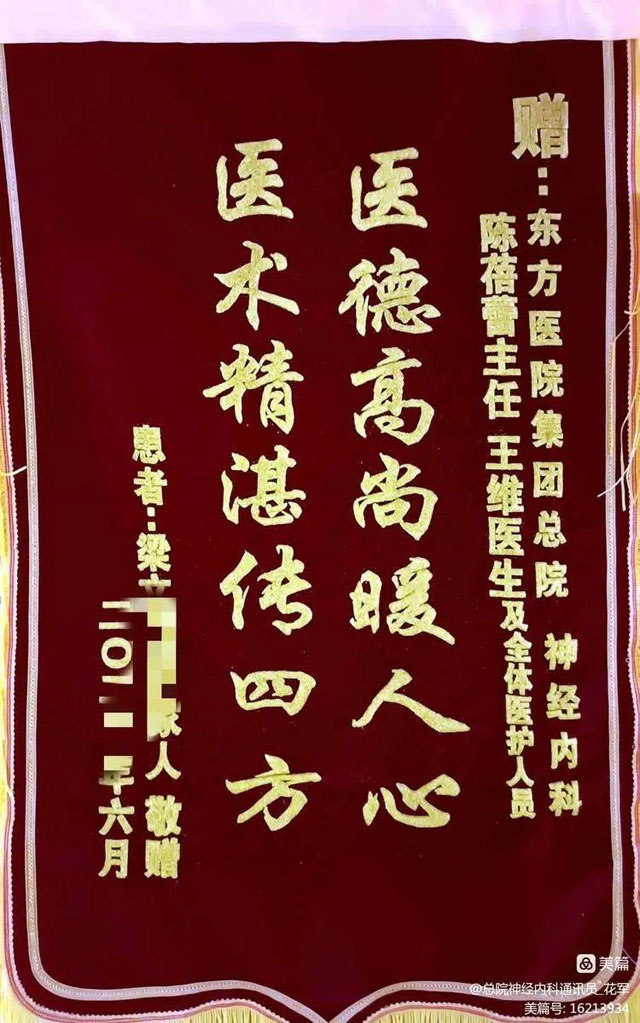 赠：东方医院集团总院 神经内科
陈蓓蕾主任 王维医生及全体医护人员
医德高尚暖人心
医术精湛传四方
患者：梁 家人 敬赠
年六月
美篇
@总院神经内科通讯员_花军
美篇号: 16213934